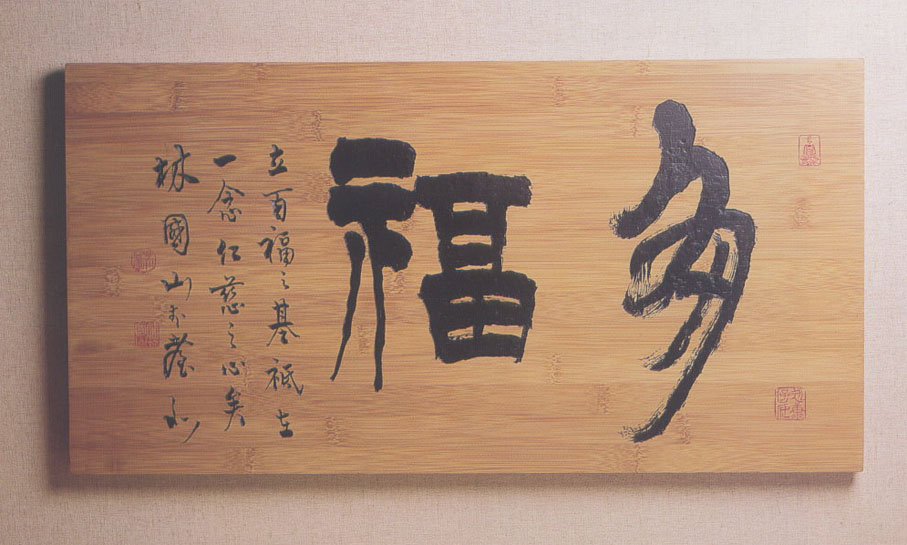 多福
立百福之基祇在
一念仁慈之心矣
林國山於